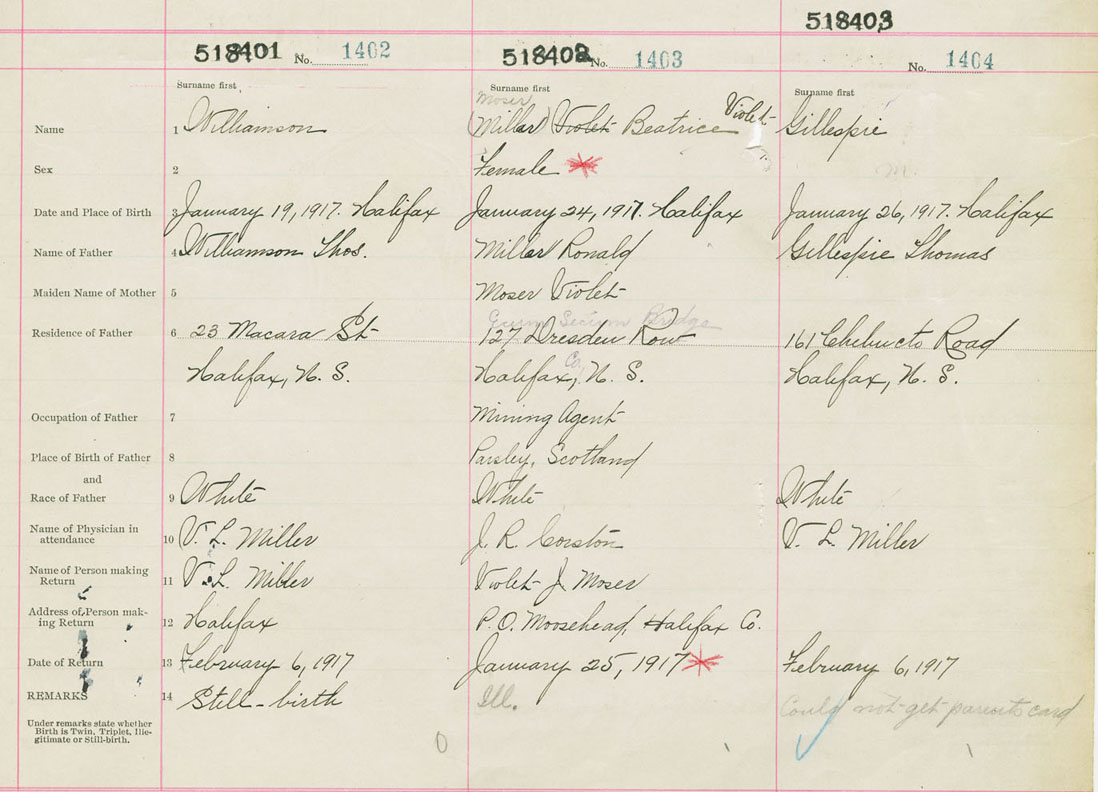 518403
518401 No. 1402 518402 No. 1403 No. 1404
Surname first Surname first Surname first
Moser
Name 1 Williamson (Millar) Violet Beatrice Violet Gillespie
Sex 2 Female M.
Date and Place of Birth 3 January 19, 1917. Halifax January 24, 1917. Halifax January 26, 1917. Halifax
Name of Father 4 Williamson Thos. Millar Ronald Gillespie Thomas
Maiden Name of Mother 5 Moser Violet
Secum Bridge
Residence of Father 6 23 Macara St 127 Dresden Row 161 Chebucto Road
Co.
Halifax, N. S. Halifax, N. S. Halifax, N. S.
Occupation of Father 7 Mining Agent
Place of Birth of Father 8 Parsley, Scotland
and
Race of Father 9 White White White
Name of Physician in
attendance 10 V. L. Miller J. R. Corston V. L. Miller
Name of Person making
Return 11 V. L. Miller Violet J. Moser
Address of Person mak-
ing Return 12 Halifax P.O. Moosehead, Halifax Co.
Date of Return 13 February 6, 1917 January 25, 1917 February 6, 1917
REMARKS 14 Still-birth Ill. Could not get parents card
Under remarks state whether
Birth is Twin, Triplet, Ille-
gitimate or Still-birth.